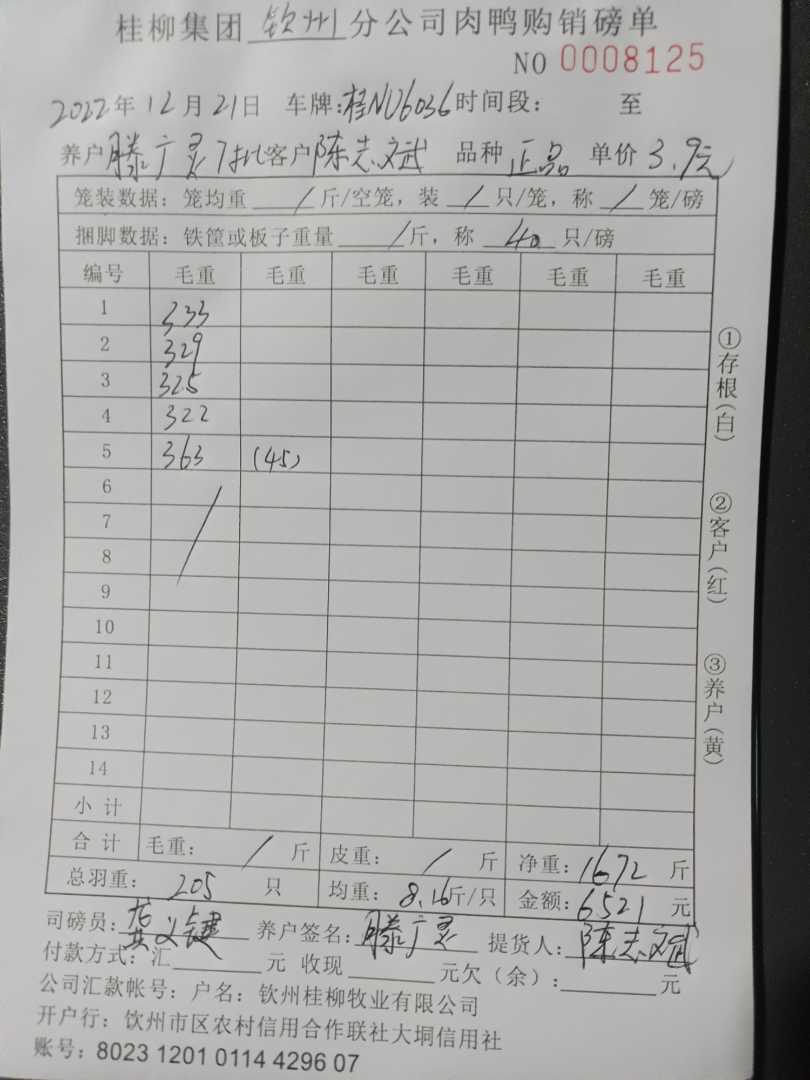 桂柳集团 钦州 分公司肉鸭购销磅单
NO 0008125
2022年12月21日 车牌:桂NU6036 时间段: 至
养户 滕广灵 7批 客户 陈志斌 品种 正品 单价 3.9元
笼装数据: 笼均重 / 斤/空笼, 装 / 只/笼, 称 / 笼/磅
捆脚数据: 铁筐或板子重量 / 斤, 称 40 只/磅
编号 毛重 毛重 毛重 毛重 毛重 毛重
1 333
2 329
3 325
4 322
5 363 (45)
6
7
8
9
10
11
12
13
14
小计
合计 毛重: / 斤 皮重: / 斤 净重: 1672 斤
总羽重: 205 只 均重: 8.16斤/只 金额: 6521 元
司磅员: 养户签名: 滕广灵 提货人: 陈志斌
付款方式: 汇 元 收现 元欠(余): 元
公司汇款帐号: 户名: 钦州桂柳牧业有限公司
开户行: 钦州市区农村信用合作联社大垌信用社
账号: 8023 1201 0114 4296 07
①存根(白)
②客户(红)
③养户(黄)